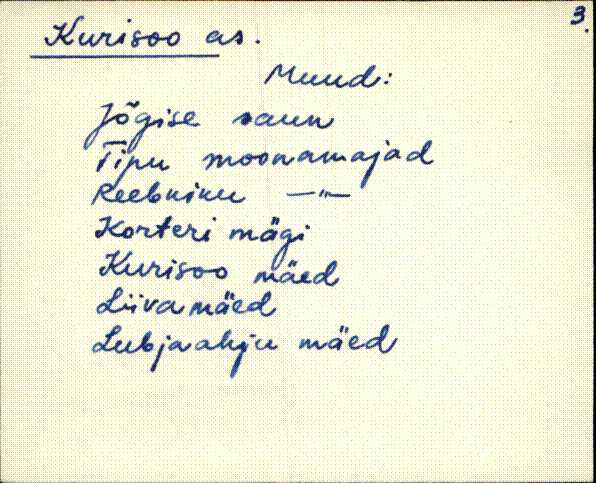 3.
Kurisoo as.
Muud:
Jõgise saun
Tipu moonamajad
Reebniku —"—
Korteri mägi
Kurisoo mäed
Liivamäed
Lubjaahju mäed